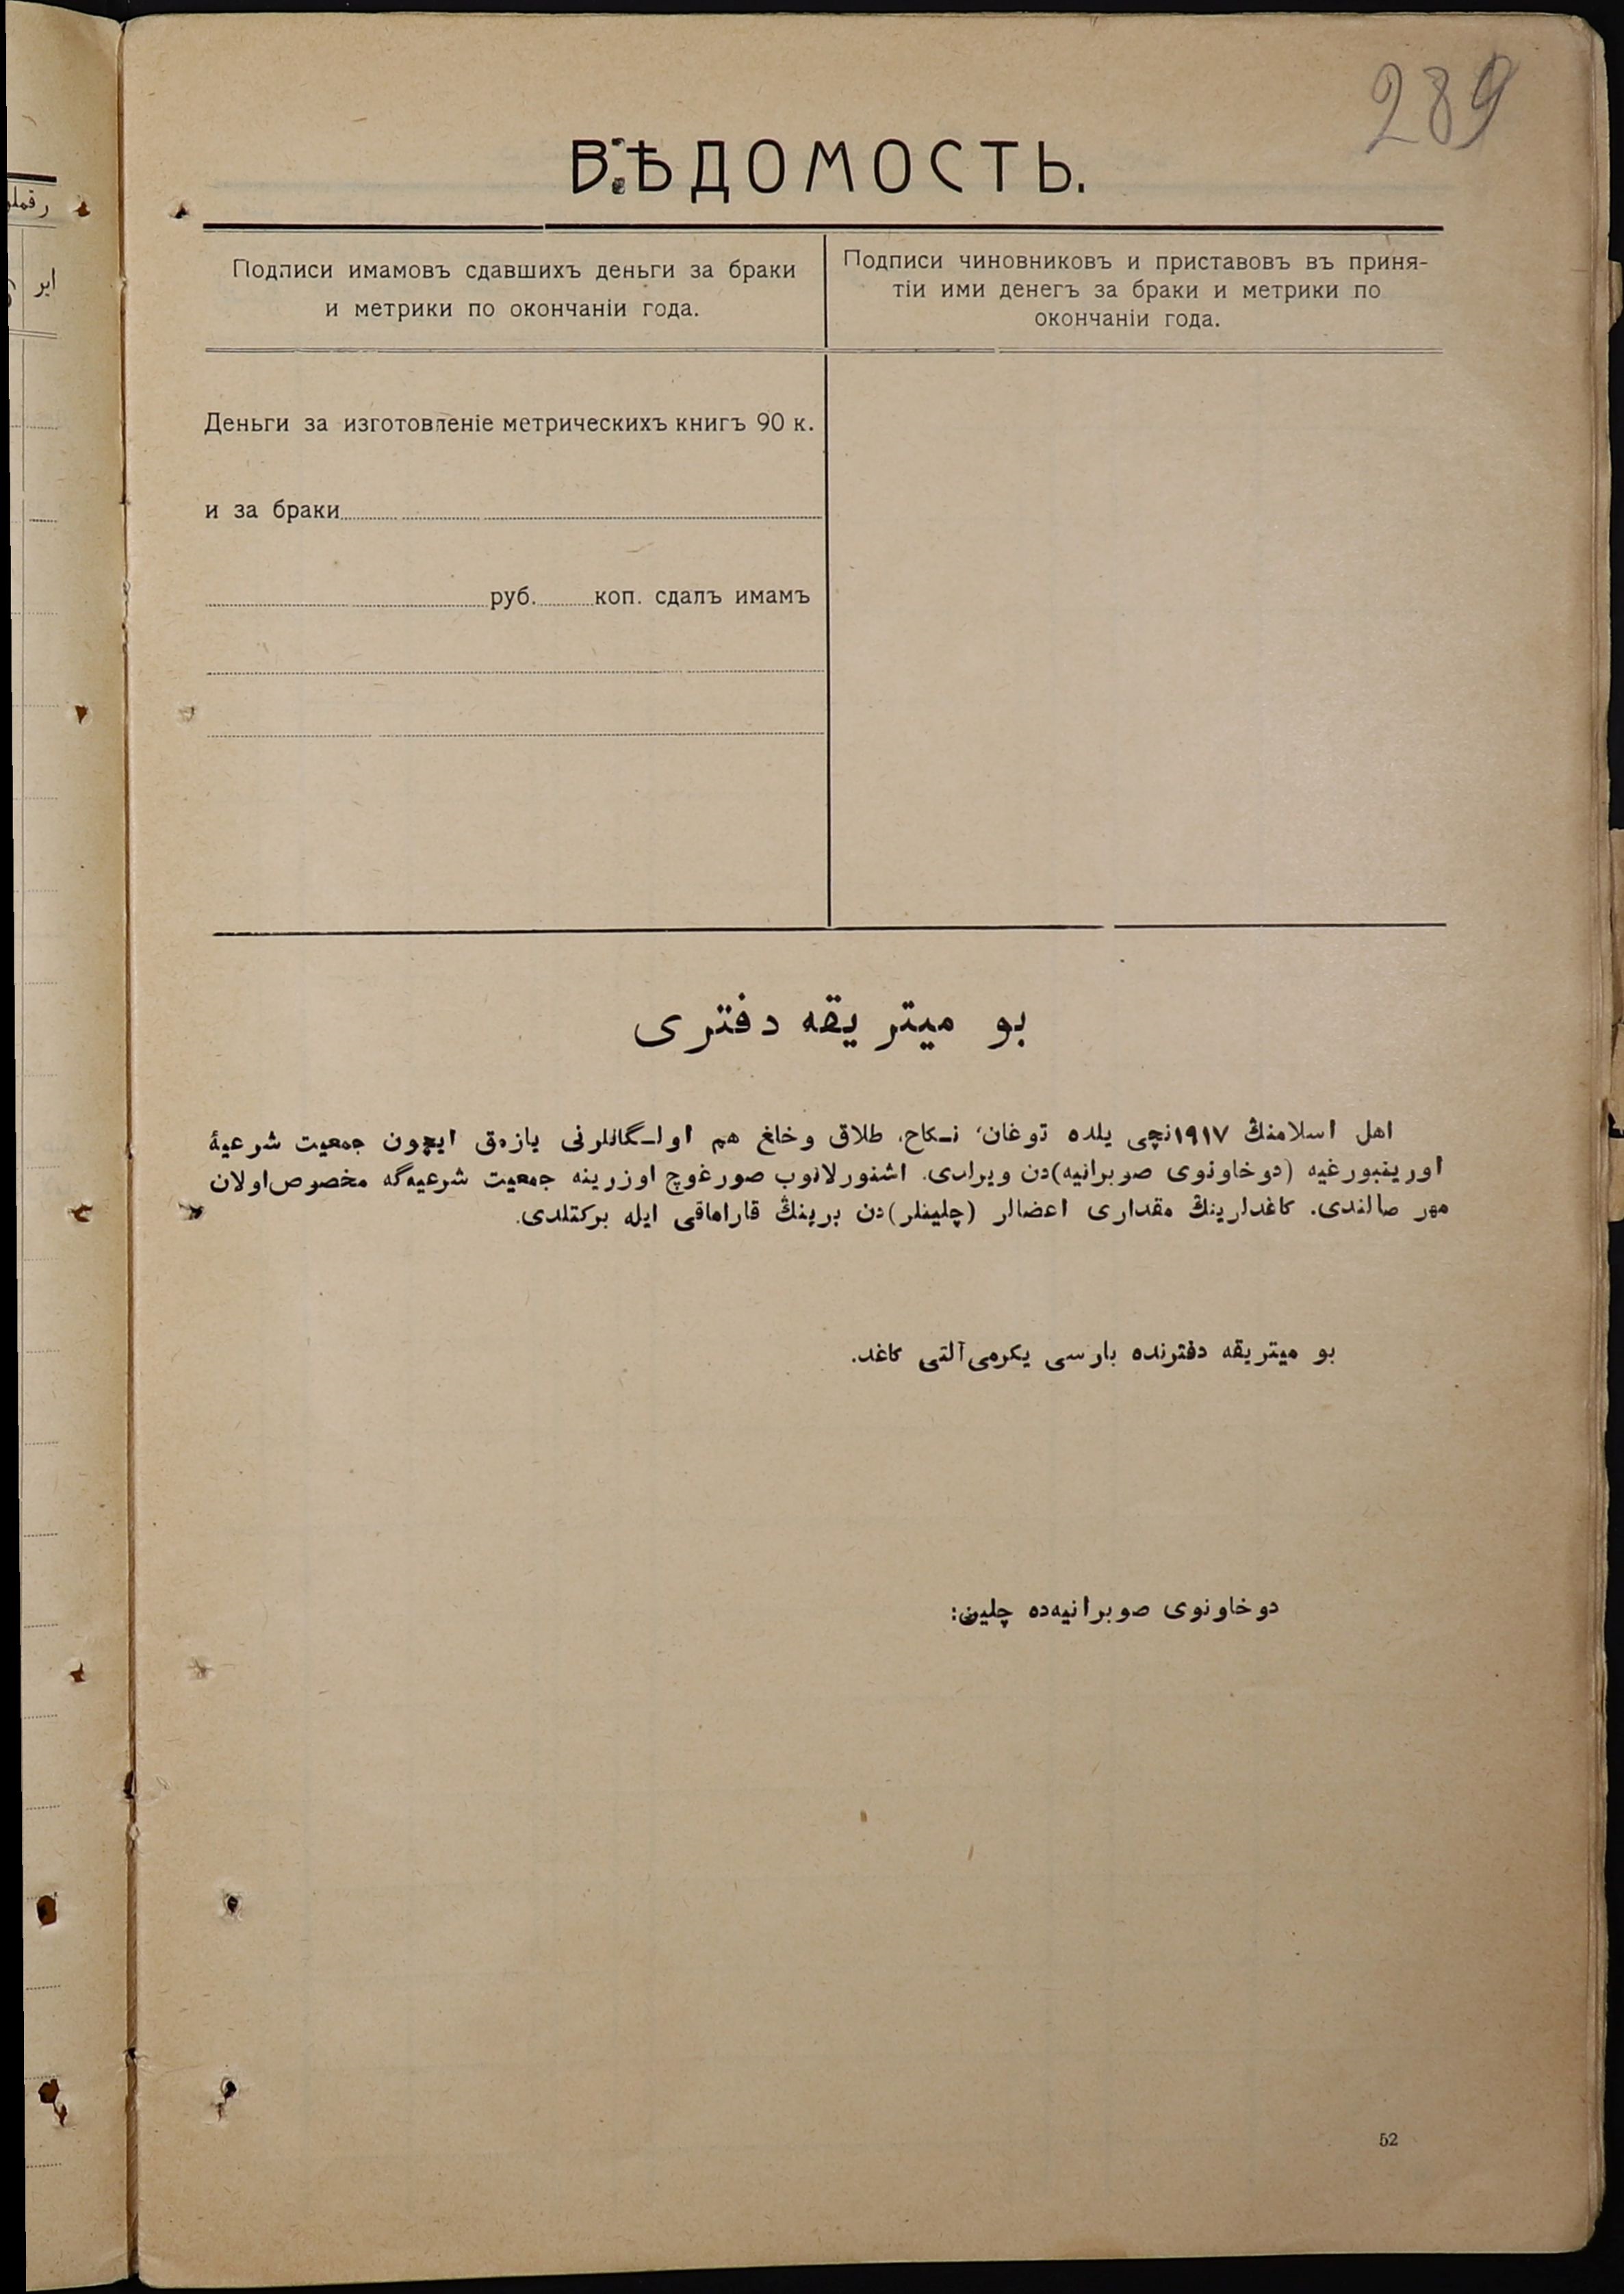 289
ВѢДОМОСТЬ.
Подписи имамовъ сдавшихъ деньги за браки
и метрики по окончаніи года.
Подписи чиновниковъ и приставовъ въ приня-
тіи ими денегъ за браки и метрики по
окончаніи года.
Деньги за изготовленіе метрическихъ книгъ 90 к.
и за браки
руб. коп. сдалъ имамъ
بو ميتريقه دفترى
اهل اسلامنڭ ١٩١٧نچى يلده توغان، نـكاح، طلاق وخلغ هم اولـگانلرنى يازمق ايچون جمعيت شرعيهٔ
اورينبورغيه (دوخاونوى صوبرانيه)دن ويرلدى. اشنورلانوب صورغوچ اوزرينه جمعيت شرعيه‌گه مخصوص اولان
مهر صالندى. كاغدلارينڭ مقدارى اعضالر (چلينلر)دن برينڭ قاراماقى ايله بركتلدى.
بو ميتريقه دفترنده بارسى يكرمى آلتى كاغد.
دوخاونوى صوبرانيه‌ده چلين:
52
رقملر
اير